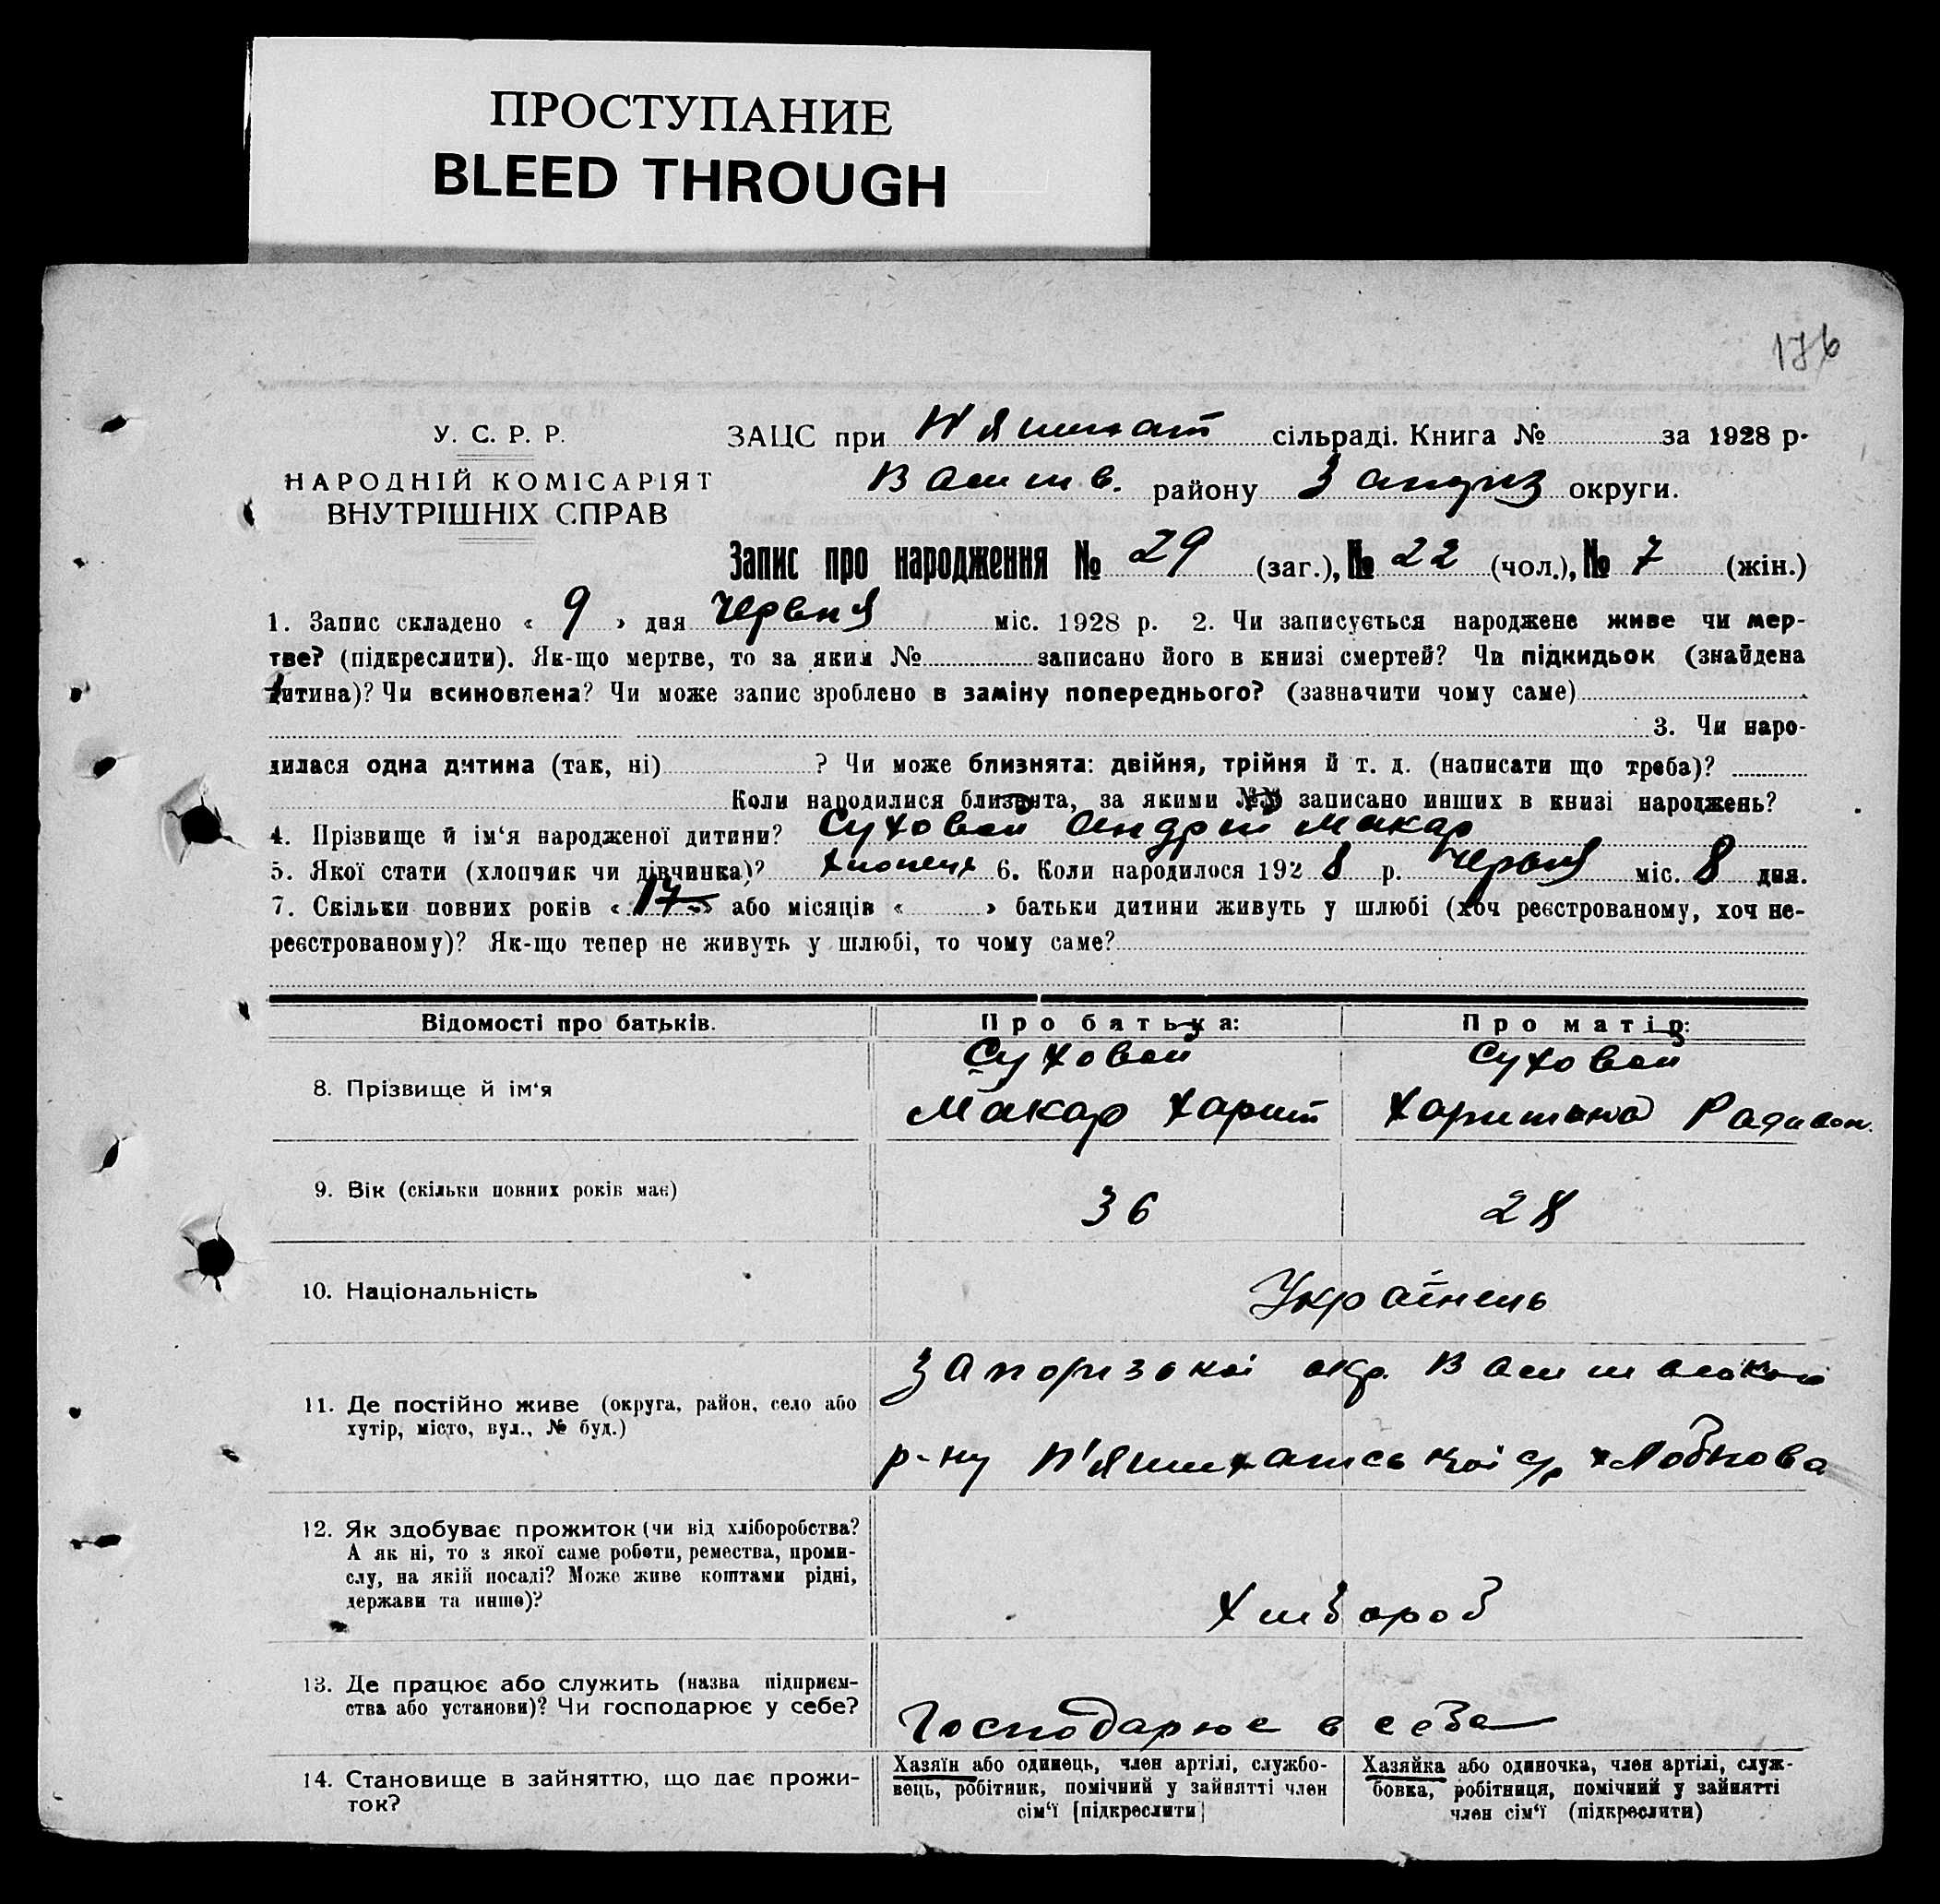 ПРОСТУПАНИЕ
BLEED THROUGH
176
У. С. Р. Р.
НАРОДНІЙ КОМІСАРІЯТ
ВНУТРІШНІХ СПРАВ
ЗАЦС при П'яцихат сільраді. Книга № за 1928 р.
Васил в. району Запоріз округи.
Запис про народження № 29 (заг.), № 22 (чол.), № 7 (жін.)
1. Запис складено « 9 » дня Червня міс. 1928 р. 2. Чи записується народжене живе чи мер-
тве? (підкреслити). Як-що мертве, то за яким № записано його в книзі смертей? Чи підкидьок (знайдена
дитина)? Чи всиновлена? Чи може запис зроблено в заміну попереднього? (зазначити чому саме)
3. Чи наро-
дилася одна дитина (так, ні) ? Чи може близнята: двійня, трійня й т. д. (написати що треба)?
Коли народилися близнята, за якими №№ записано инших в книзі народжень?
4. Прізвище й ім'я народженої дитини? Суховей Андрій Макар
5. Якої стати (хлопчик чи дівчинка)? хлопець 6. Коли народилося 192 8 р. Червня міс. 8 дня.
7. Скільки повних років « 17 » або місяців « » батьки дитини живуть у шлюбі (хоч реєстрованому, хоч не-
реєстрованому)? Як-що тепер не живуть у шлюбі, то чому саме?
Відомості про батьків. Про батька: Про матір:
8. Прізвище й ім'я
Суховей Суховей
Макар Харит Харитина Радивон.
9. Вік (скільки повних років має) 36 28
10. Національність Українець
11. Де постійно живе (округа, район, село або
хутір, місто, вул., № буд.)
Запорізької окр. Василівської
р-ну П'ятихатської с/р х Лобкова
12. Як здобуває прожиток (чи від хліборобства?
А як ні, то з якої саме роботи, ремества, проми-
слу, на якій посаді? Може живе коштами рідні,
держави та инше)?
Хлібороб
13. Де працює або служить (назва підприєм-
ства або установи)? Чи господарює у себе?
Господарює в себе
14. Становище в зайняттю, що дає прожи-
ток?
Хазяїн або одинець, член артілі, службо-
вець, робітник, помічний у зайнятті член
сім'ї [підкреслити]
Хазяйка або одиночка, член артілі, служ-
бовка, робітниця, помічний у зайнятті
член сім'ї (підкреслити)